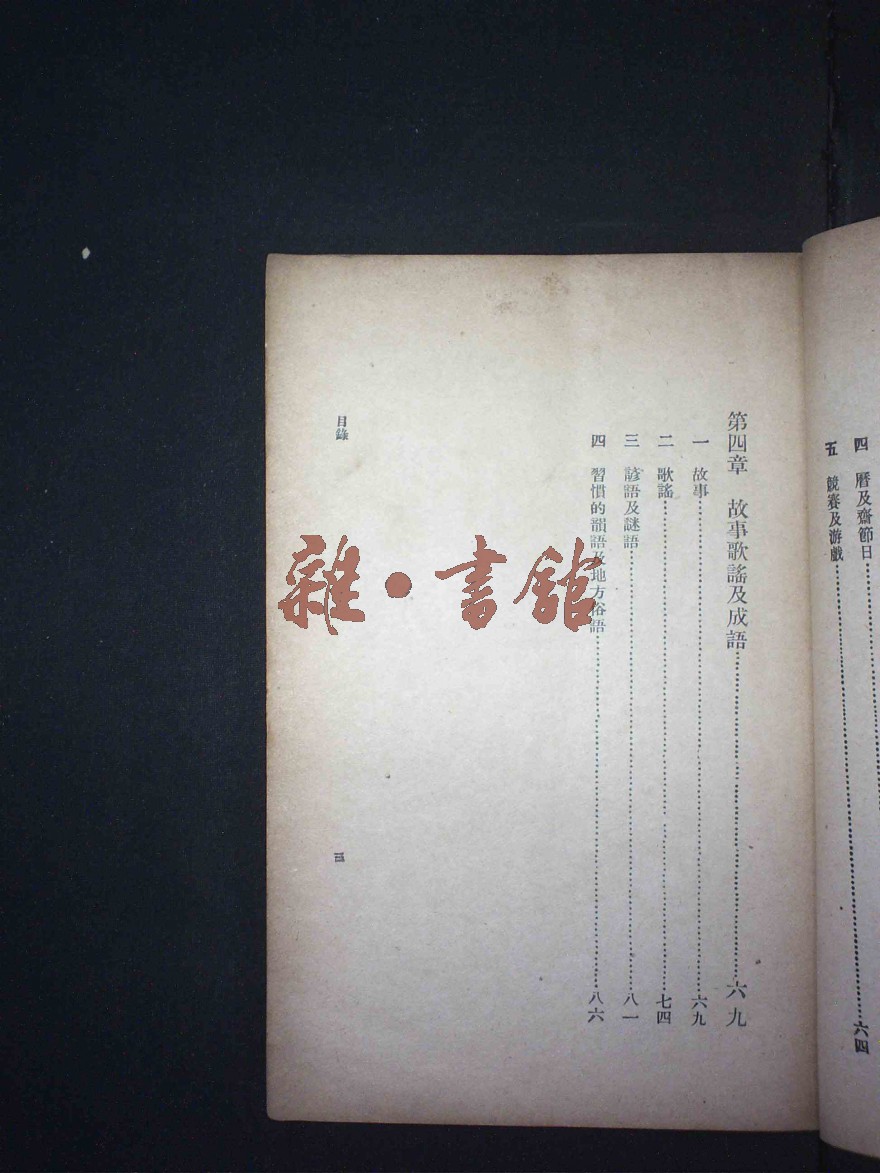 四 曆及齋節日……
五 競賽及游戲……六四
第四章 故事歌謠及成語……六九
一 故事……六九
二 歌謠……七四
三 諺語及謎語……八一
四 習慣的韻語及地方俗語……八六
目錄
三
雜·書館